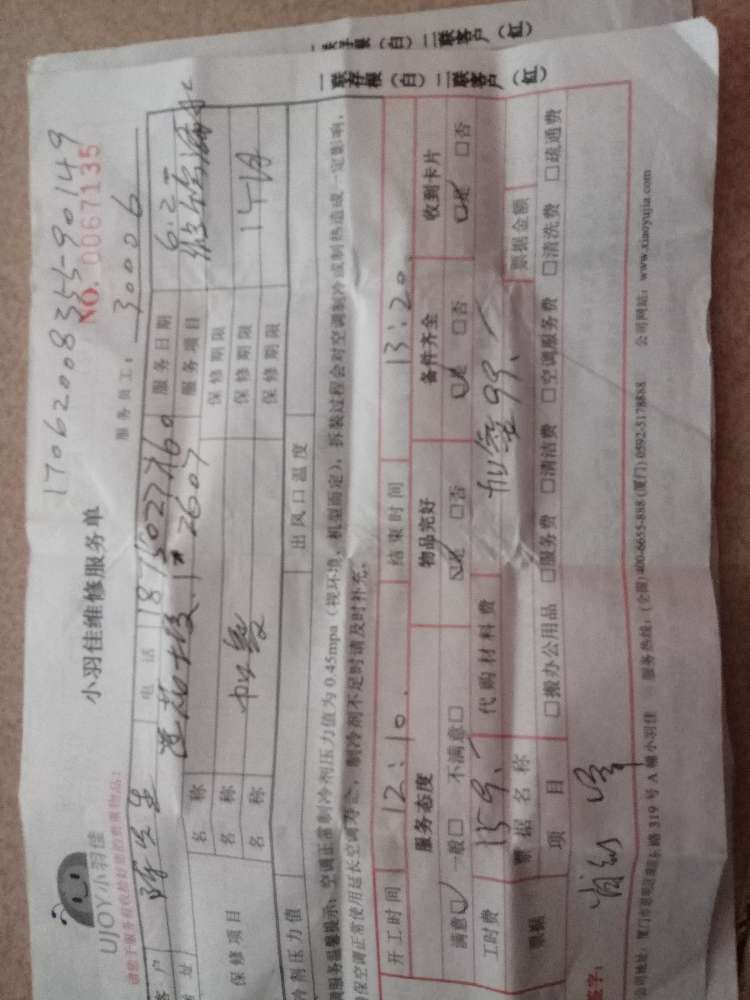 一联存根（白）二联客户（红）
一联存根（白）二联客户（红）
170620083
-90149
NO. 0067135
UJOY小羽佳
小羽佳维修服务单
请您于服务前收拾好您的贵重物品：
服务员工：30006
客户
电话
服务日期 6.2
地址
2607
服务项目
保修项目
名称
保修期限
名称
保修期限
名称
保修期限
冷剂压力值
出风口温度
调服务温馨提示：空调正常制冷剂压力值为 0.45mpa（视环境、机型而定），拆装过程会对空调制冷或制热造成一定影响，
保空调正常使用延长空调寿命，制冷剂不足时请及时补充。
开工时间 12:10.
结束时间 13:20
服务态度
物品完好
备件齐全
收到卡片
满意☑ 一般□ 不满意□
☑是 □否
☑是 □否
☑是 □否
工时费 159.
代购材料费 99.
票据
票据名称
票据金额
项目
□搬办公用品 □服务费 □清洁费 □空调服务费 □清洗费 □疏通费
签字：
公司地址：厦门市思明区
东路 319 号 A 幢小羽佳 服务热线：(全国)400-6655-888 (厦门)0592-5178888 公司网站：www.xiaoyujia.com